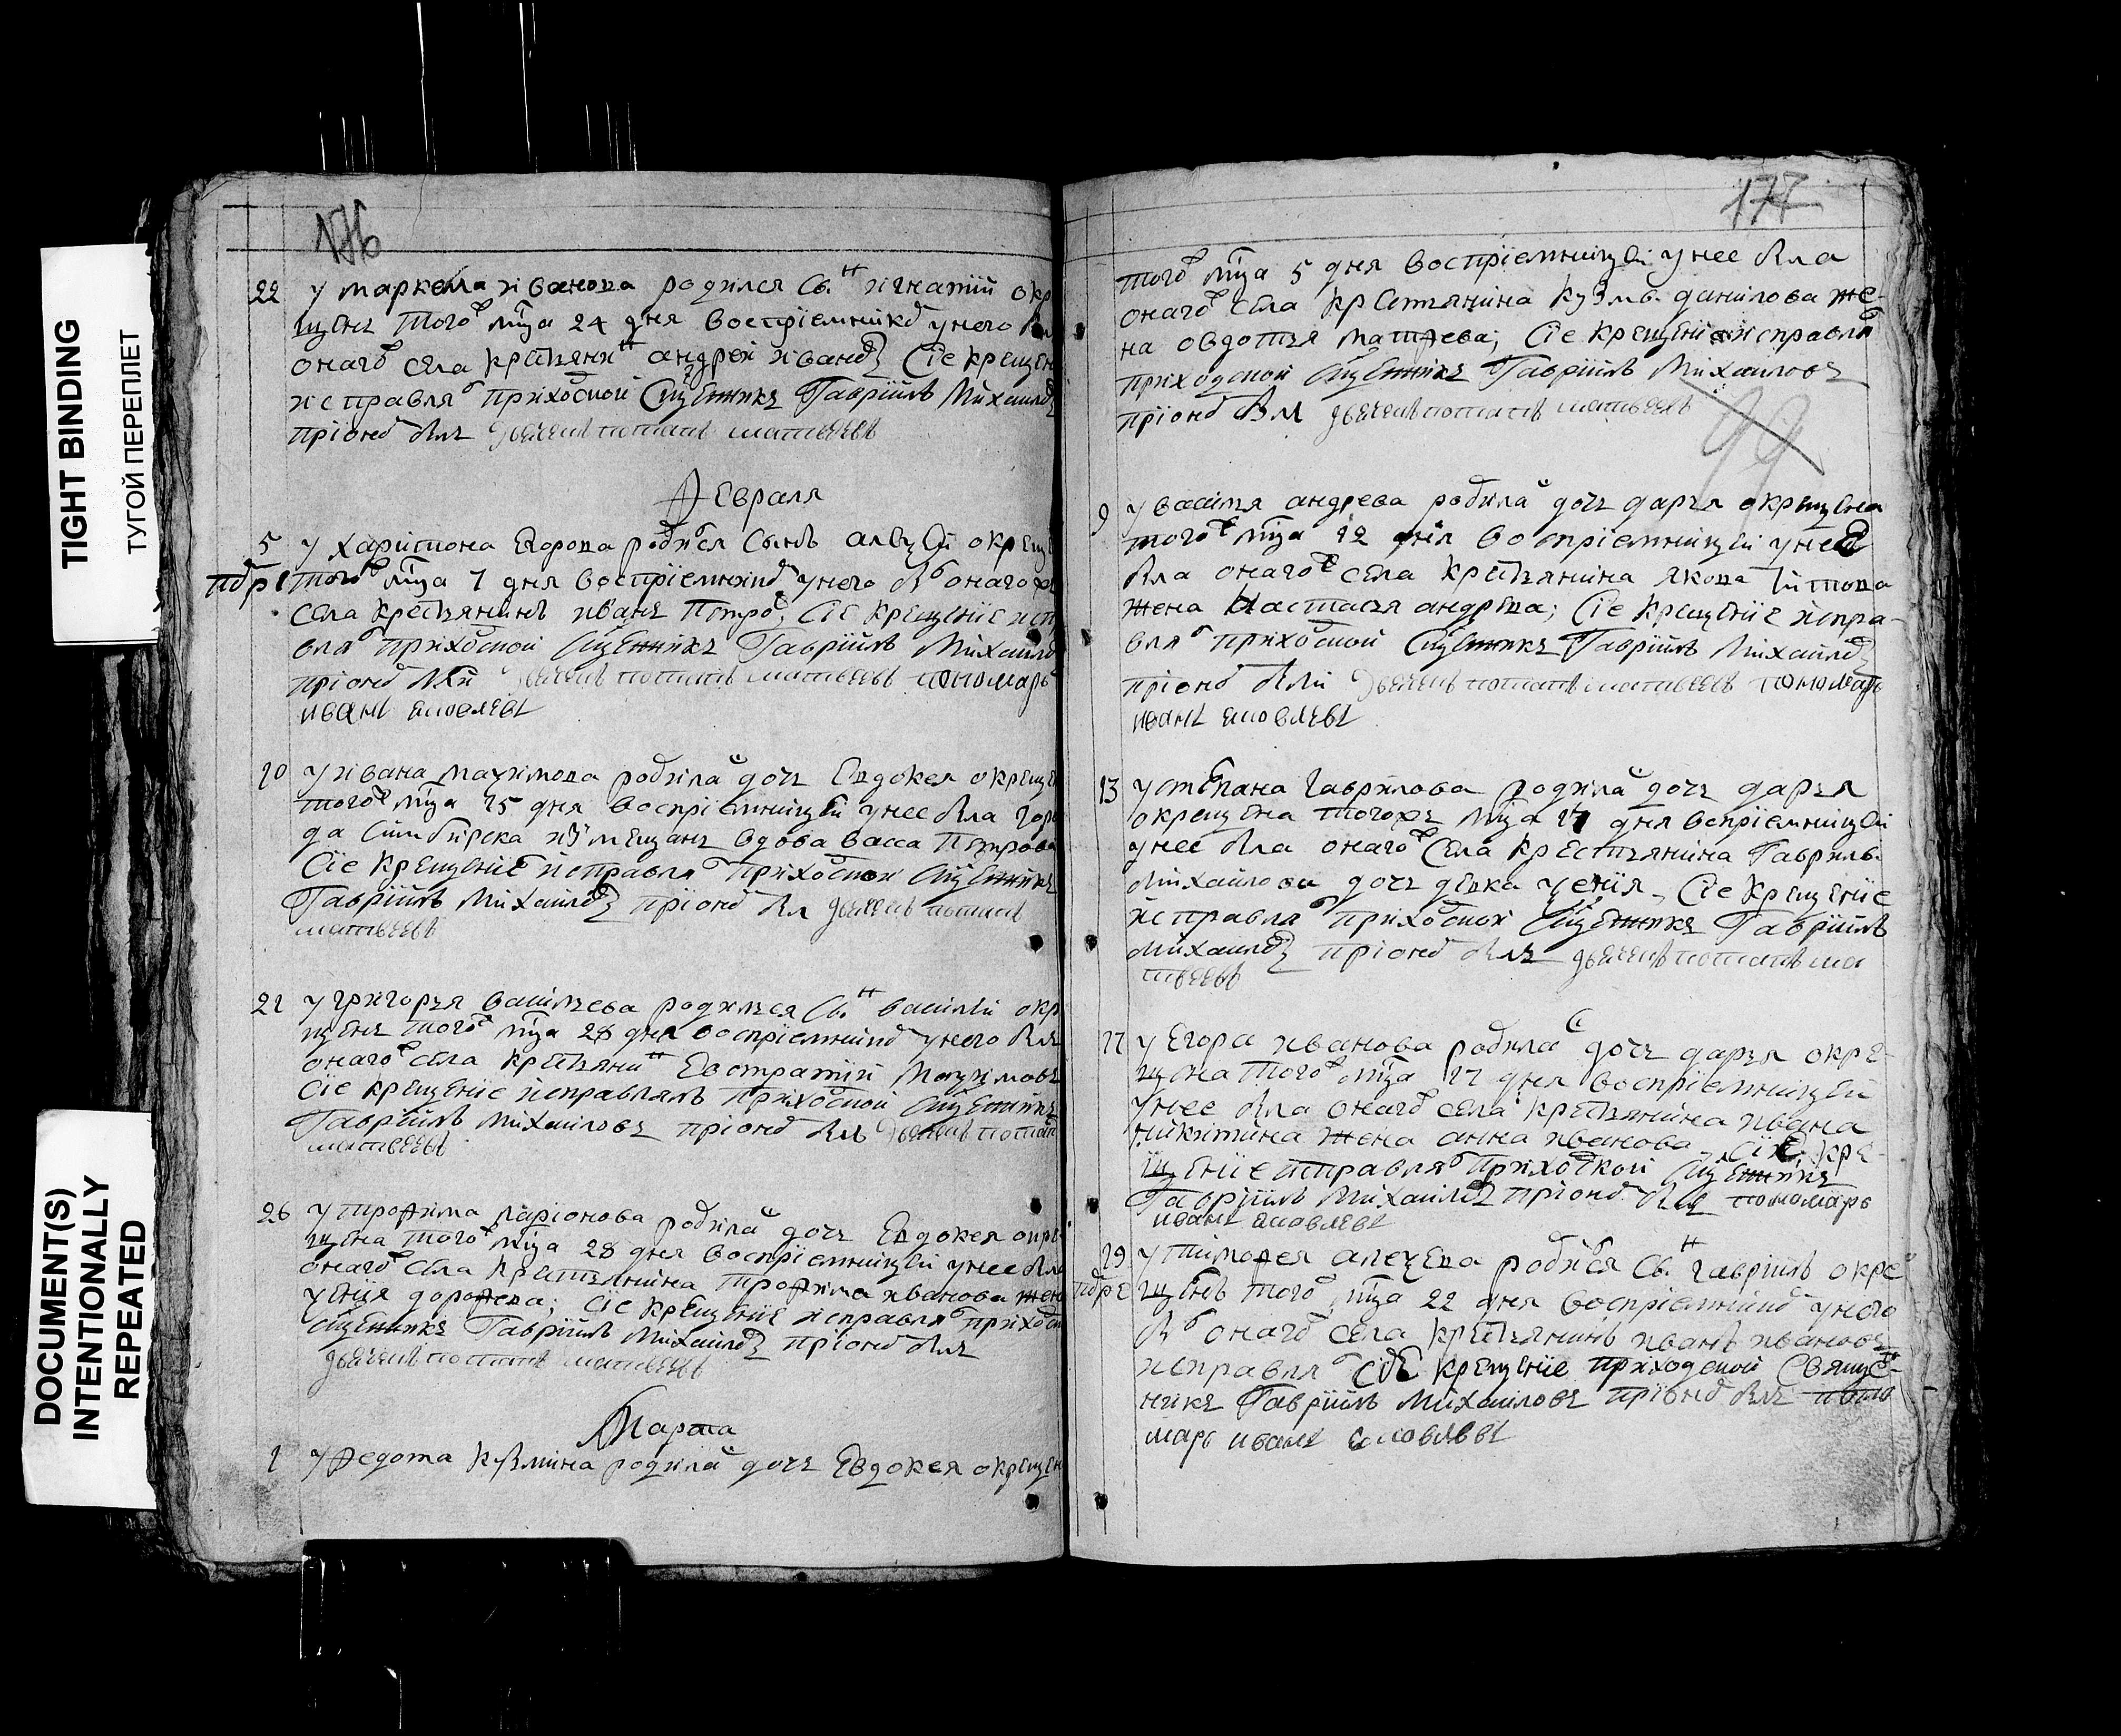 TIGHT BINDING
ТУГОЙ ПЕРЕПЛЕТ
DOCUMENT(S)
INTENTIONALLY
REPEATED
176
22 у маркела иванова родился сынъ игнатий окре
щенъ того мца 24 дня восприемникъ у него былъ
онаго села крестьянинъ андрей ивановъ Сие крещен
исправлялъ приходской священникъ Гавриилъ Михаиловъ
при оном былъ дьяченъ потапъ матвеевъ
Февраля
5 у харитона Егорова родился сынъ алеѯей окреще
того мца 7 дня восприемникъ у него былъ онаго ж
села крестьянинъ иванъ Петровъ; Сие крещение испра
влялъ приходской священникъ Гавриилъ Михаилов
при оном были дьяченъ потапъ матвеевъ пономарь
иванъ яковлевъ
10 у ивана маѯимова родилась дочь Евдокея окреще
того мца 15 дня восприемницей у нее была горо
да Симбирска из мещанъ вдова васса Петрова
Сие крещение исправлялъ приходской священникъ
Гавриилъ Михаиловъ при оном былъ дьяченъ потапъ
матвеевъ
21 у григорья васильева родилься сынъ василей окре
щенъ того мца 28 дня восприемникъ у него былъ
онаго села крестьянинъ Евстратий Маѯимовъ
Сие крещение исправлялъ приходской священникъ
Гавриилъ Михаиловъ при оном былъ дьяченъ потапъ
матвеевъ
26 у трофима ларионова родилась дочь Евдокея окре
щена того мца 28 дня восприемницей у нее была
онаго села крестьянина трофима иванова жена
дорофеева; Сие крещение исправлялъ приходской
священникъ Гавриилъ Михаиловъ при оном былъ
дьяченъ потапъ матвеевъ
Марта
1 у федота кузмина родилась дочь Евдокея окрещен
177
того мца 5 дня восприемницей у нее была
онаго села крестьянина кузмы данилова же-
на овдотья матфеева; Сие крещение исправлялъ
приходской священникъ Гавриилъ Михаиловъ
при оном былъ дьяченъ потапъ матвеевъ
99
9 у василья андреева родилась дочь дарья окрещена
того мца 12 дня восприемницей у нее
была онаго села крестьянина якова титова
жена Настасья андреева; Сие крещение испра-
влялъ приходской священникъ Гавриилъ Михаиловъ
при оном были дьяченъ потапъ матвеевъ пономарь
иванъ яковлевъ
13 у степана гаврилова родилась дочь дарья
окрещена тогожъ мца 17 дня восприемницей
у нее была онаго села крестьянина Гаврилы
Михаилова дочь девка Сие крещение
исправлялъ приходской священникъ Гавриилъ
Михаиловъ при оном былъ дьяченъ потапъ ма
твеевъ
17 у Егора иванова родилась дочь дарья окре-
щена того мца 17 дня восприемницей
у нее была онаго села крестьянина ивана
никитина жена анна иванова Сие кре-
щение исправлялъ приходской священникъ
Гавриилъ Михаиловъ при оном былъ пономарь
иванъ яковлевъ
19 у тимофея алеѯеева родился сынъ гавриилъ окре
щенъ того мца 22 дня восприемникъ у него
былъ онаго села крестьянинъ иванъ ивановъ
исправлялъ сие крещение приходской Священ-
никъ Гавриилъ Михаиловъ при оном былъ поно
марь иванъ яковлевъ